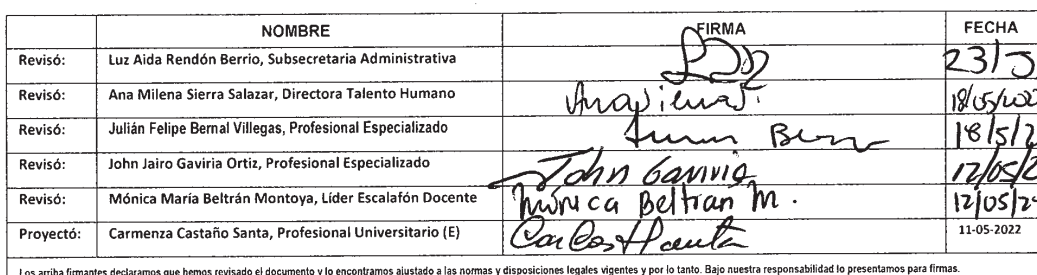 NOMBRE FIRMA FECHA
Revisó: Luz Aida Rendón Berrio, Subsecretaria Administrativa 23/5
Revisó: Ana Milena Sierra Salazar, Directora Talento Humano 18/05/202
Revisó: Julián Felipe Bernal Villegas, Profesional Especializado 18/5/2
Revisó: John Jairo Gaviria Ortiz, Profesional Especializado John Gaviria 12/05/2
Revisó: Mónica María Beltrán Montoya, Líder Escalafón Docente Mónica Beltran M. 12/05/2
Proyectó: Carmenza Castaño Santa, Profesional Universitario (E) 11-05-2022
Los arriba firmantes declaramos que hemos revisado el documento y lo encontramos ajustado a las normas y disposiciones legales vigentes y por lo tanto. Bajo nuestra responsabilidad lo presentamos para firmas.